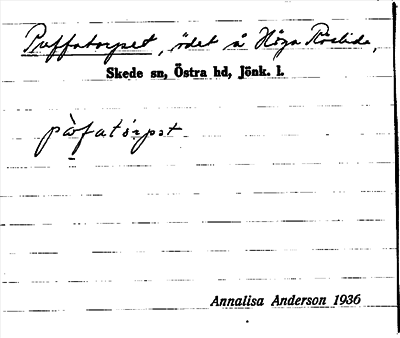 Puffatorpet, ödet å Höga Röslida,
Skede sn, Östra hd, Jönk. l.
på̀fatórpət
Annalisa Anderson 1936